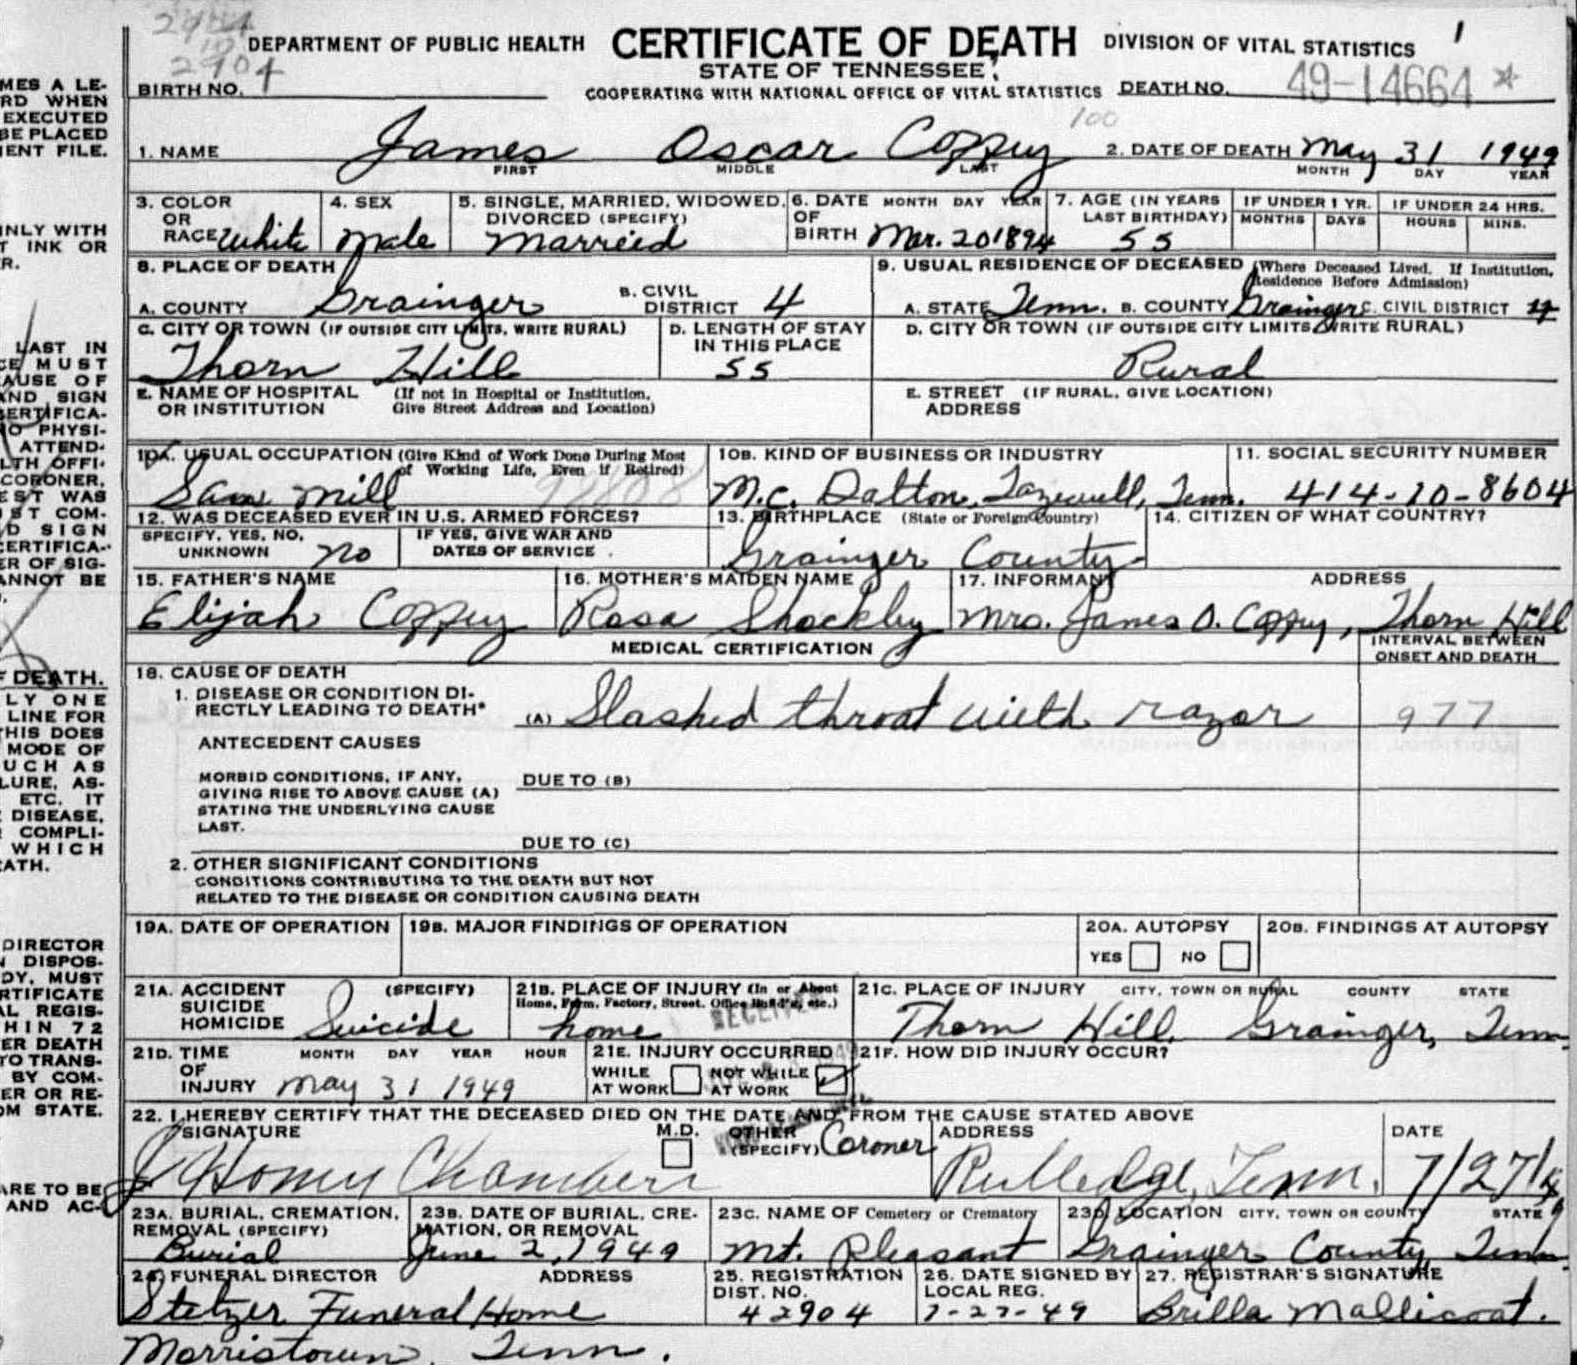 2904
10
2904
DEPARTMENT OF PUBLIC HEALTH CERTIFICATE OF DEATH DIVISION OF VITAL STATISTICS 1
STATE OF TENNESSEE
BIRTH NO. COOPERATING WITH NATIONAL OFFICE OF VITAL STATISTICS DEATH NO. 49-14664 *
100
1. NAME James Oscar Coppuy 2. DATE OF DEATH May 31 1949
FIRST MIDDLE LAST MONTH DAY YEAR
3. COLOR OR RACE White 4. SEX Male 5. SINGLE, MARRIED, WIDOWED, DIVORCED (SPECIFY) Marreid 6. DATE OF BIRTH MONTH DAY YEAR Mar. 20 1894 7. AGE (IN YEARS LAST BIRTHDAY) 55 IF UNDER 1 YR. MONTHS DAYS IF UNDER 24 HRS. HOURS MINS.
8. PLACE OF DEATH 9. USUAL RESIDENCE OF DECEASED (Where Deceased Lived. If Institution, Residence Before Admission)
A. COUNTY Grainger B. CIVIL DISTRICT 4 A. STATE Tenn. B. COUNTY Grainger C. CIVIL DISTRICT 4
C. CITY OR TOWN (IF OUTSIDE CITY LIMITS, WRITE RURAL) D. LENGTH OF STAY IN THIS PLACE D. CITY OR TOWN (IF OUTSIDE CITY LIMITS WRITE RURAL)
Thorn Hill 55 Rural
E. NAME OF HOSPITAL OR INSTITUTION (If not in Hospital or Institution, Give Street Address and Location) E. STREET ADDRESS (IF RURAL, GIVE LOCATION)
10A. USUAL OCCUPATION (Give Kind of Work Done During Most of Working Life, Even if Retired) 10B. KIND OF BUSINESS OR INDUSTRY 11. SOCIAL SECURITY NUMBER
Saw Mill M.C. Dalton, Tazewell, Tenn. 414-10-8604
12. WAS DECEASED EVER IN U.S. ARMED FORCES? 13. BIRTHPLACE (State or Foreign Country) 14. CITIZEN OF WHAT COUNTRY?
SPECIFY, YES, NO, UNKNOWN no IF YES, GIVE WAR AND DATES OF SERVICE Grainger County
15. FATHER'S NAME 16. MOTHER'S MAIDEN NAME 17. INFORMANT ADDRESS
Elijah Coppuy Rosa Shockley Mrs. James O. Coppuy, Thorn Hill
MEDICAL CERTIFICATION INTERVAL BETWEEN ONSET AND DEATH
18. CAUSE OF DEATH
1. DISEASE OR CONDITION DIRECTLY LEADING TO DEATH* (A) Slashed throat with razor 977
ANTECEDENT CAUSES
MORBID CONDITIONS, IF ANY, GIVING RISE TO ABOVE CAUSE (A) STATING THE UNDERLYING CAUSE LAST. DUE TO (B)
DUE TO (C)
2. OTHER SIGNIFICANT CONDITIONS
CONDITIONS CONTRIBUTING TO THE DEATH BUT NOT
RELATED TO THE DISEASE OR CONDITION CAUSING DEATH
19A. DATE OF OPERATION 19B. MAJOR FINDINGS OF OPERATION 20A. AUTOPSY YES NO 20B. FINDINGS AT AUTOPSY
21A. ACCIDENT SUICIDE HOMICIDE (SPECIFY) Suicide 21B. PLACE OF INJURY (In or About Home, Farm, Factory, Street, Office Build'g, etc.) home 21C. PLACE OF INJURY CITY, TOWN OR RURAL COUNTY STATE Thorn Hill, Grainger, Tenn.
RECEIVED
21D. TIME OF INJURY MONTH DAY YEAR HOUR May 31 1949 21E. INJURY OCCURRED WHILE AT WORK NOT WHILE AT WORK ✓ 21F. HOW DID INJURY OCCUR?
22. I HEREBY CERTIFY THAT THE DECEASED DIED ON THE DATE AND FROM THE CAUSE STATED ABOVE
SIGNATURE M.D. OTHER (SPECIFY) Coroner ADDRESS DATE
Chambers Rutledge, Tenn. 7/27/49
23A. BURIAL, CREMATION, REMOVAL (SPECIFY) 23B. DATE OF BURIAL, CREMATION, OR REMOVAL 23C. NAME OF Cemetery or Crematory 23D. LOCATION CITY, TOWN OR COUNTY STATE
Burial June 2, 1949 Mt. Pleasant Grainger County, Tenn
24. FUNERAL DIRECTOR ADDRESS 25. REGISTRATION DIST. NO. 26. DATE SIGNED BY LOCAL REG. 27. REGISTRAR'S SIGNATURE
Stetzer Funeral Home 42904 7-27-49 Brilla Mallicoat.
Morristown, Tenn.